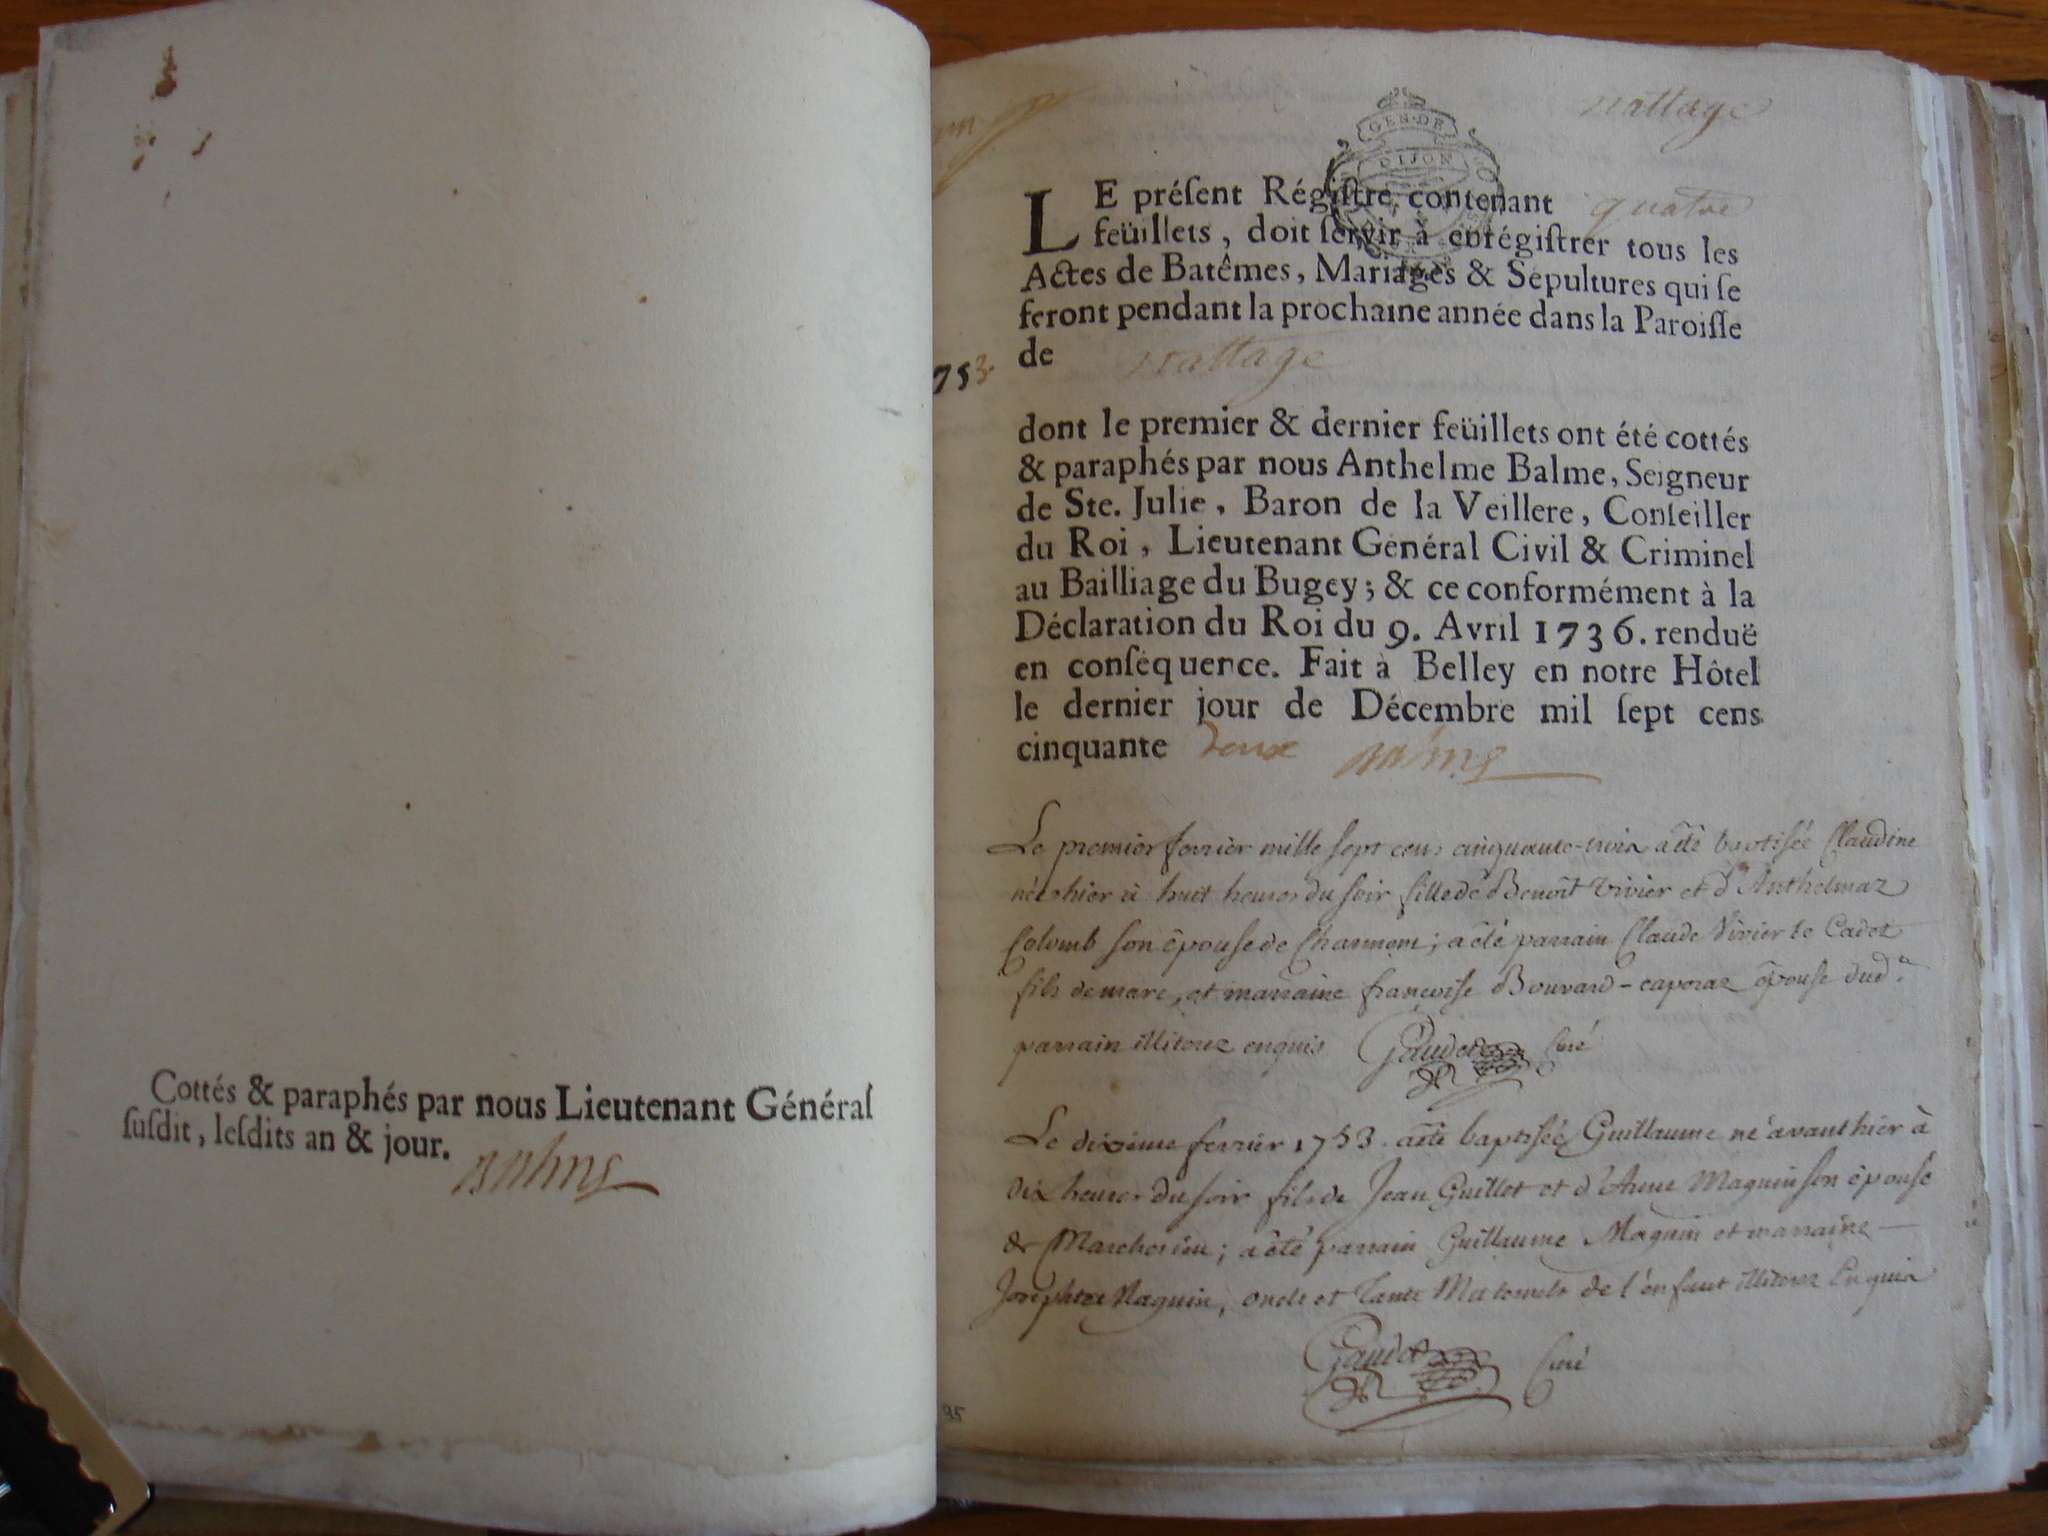 Cottés & paraphés par nous Lieutenant Général
ſuſdit, leſdits an & jour.
Balme
nattage
GEN·DE
DIJON
LE préſent Régiſtre, contenant quatre
feüillets, doit ſervir à enrégiſtrer tous les
Actes de Batêmes, Mariages & Sépultures qui ſe
feront pendant la prochaine année dans la Paroiſſe
de nattage
753.
dont le premier & dernier feüillets ont été cottés
& paraphés par nous Anthelme Balme, Seigneur
de Ste. Julie, Baron de la Veillere, Conſeiller
du Roi, Lieutenant Général Civil & Criminel
au Bailliage du Bugey; & ce conformément à la
Déclaration du Roi du 9. Avril 1736. renduë
en conſéquence. Fait à Belley en notre Hôtel
le dernier jour de Décembre mil ſept cens
cinquante deux Balme
Le premier fevrier mille sept cens cinquante-trois a été baptisée Claudine
née hier à huit heures du soir fille de Benoît Vivier et d'Anthelmaz
Colomb son épouse de Charmont; a été parrain Claude Vivier le Cadet
fils de marc, et marraine françoise Bouvard-caporaz épouse dud.
parrain illiterez enquis Gaudet Curé
Le dixième fevrier 1753. a été baptisée Guillaume né avant hier à
dix heures du soir fils de Jean Guillot et d'Anne Maguin son épouse
de; a été parrain Guillaume Maguin et marraine
Josephte Maguin, oncle et Tante Maternels de l'enfant illiterez Enquis
Gaudet Curé
95